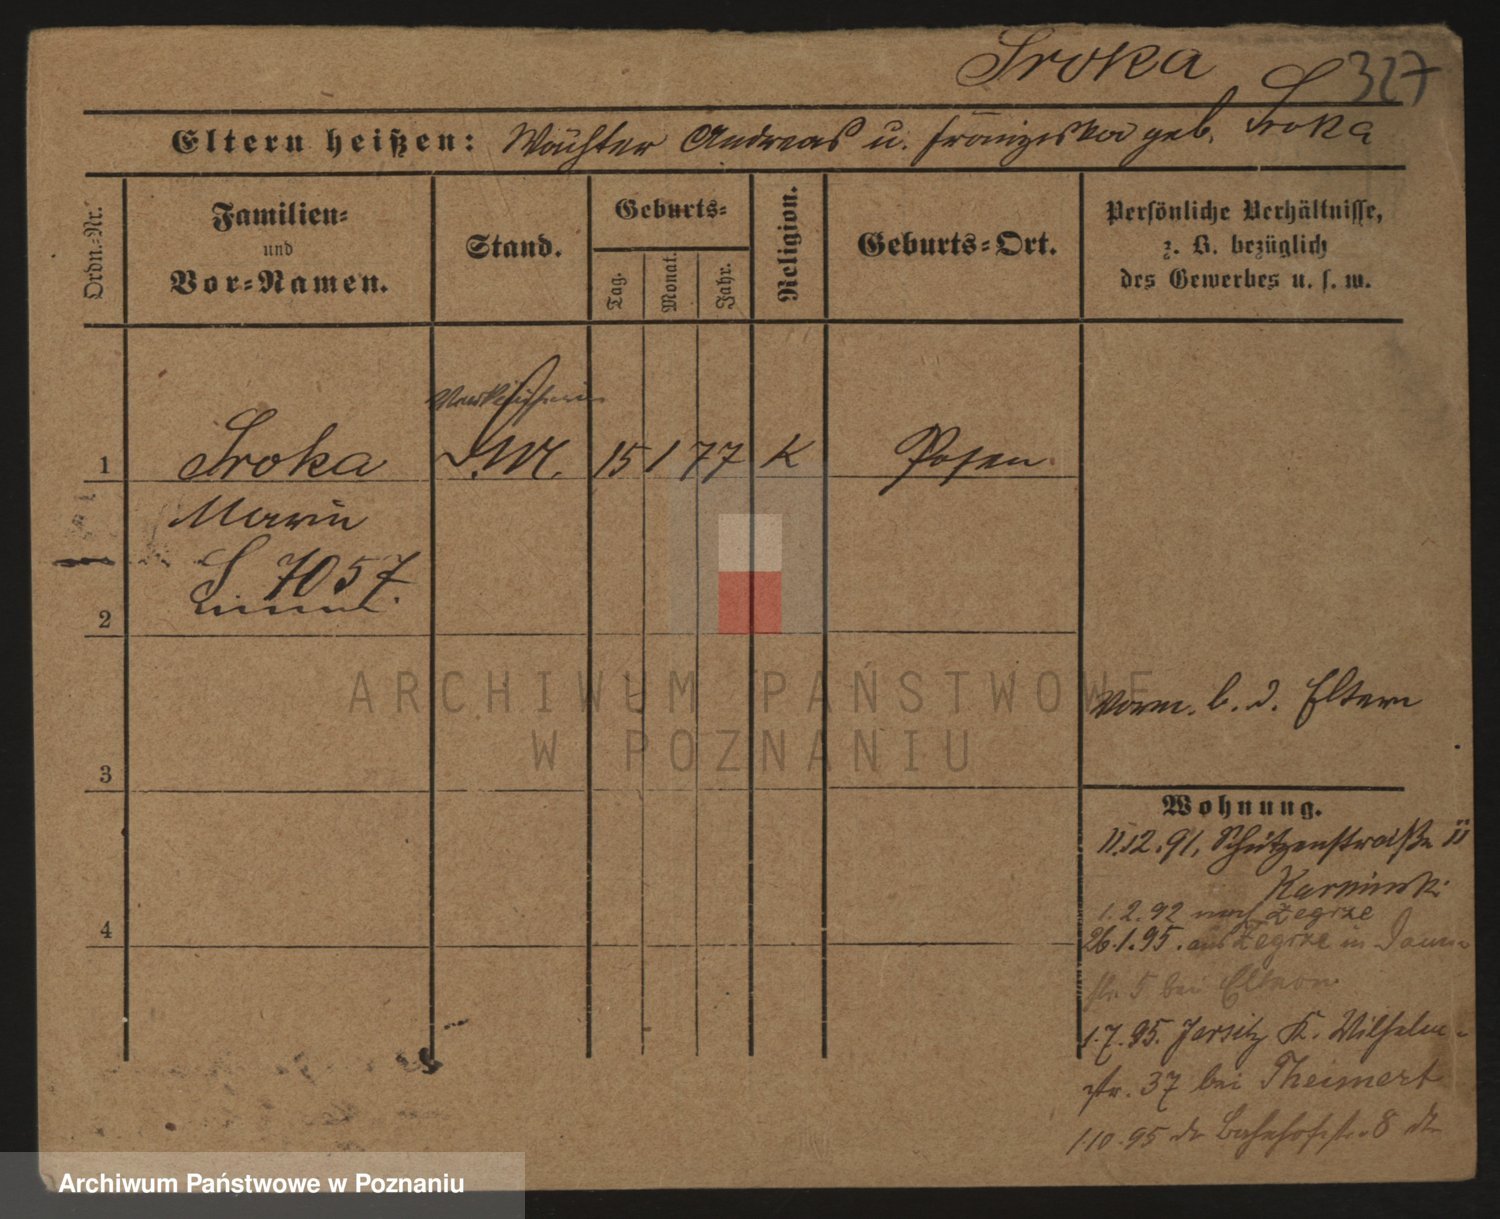 Sroka
S 327
Eltern heißen: Wächter Andreas u. Franziska geb. Sroka
Ordn.=Nr.
Familien=
und
Vor=Namen.
Stand.
Geburts=
Tag.
Monat.
Jahr.
Religion.
Geburts=Ort.
Persönliche Verhältnisse,
z. B. bezüglich
des Gewerbes u. s. w.
Verkäuferin
1 Sroka 15 1 77 K Posen
Marie
S 7057.
2
ARCHIWUM PAŃSTWOWE
W POZNANIU
Vorm. b. d. Eltern
3
Wohnung.
11.12.91, Schützenstraße
1.2.92 nach Zegrze
4
26.1.95. aus Zegrze in
str. 5 bei Eltern
1.7.95. Jersitz K. Wilhelm-
str. 37 bei Theimert
1.10.95 Bahnhofstr. 8
Archiwum Państwowe w Poznaniu